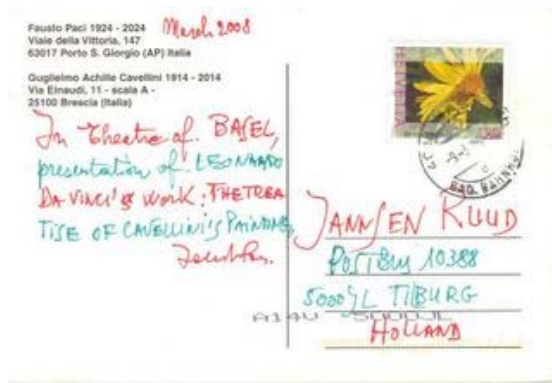 Fausto Paci 1924 - 2024
Viale della Vittoria, 147
63017 Porto S. Giorgio (AP) Italia
March 2008
Guglielmo Achille Cavellini 1914 - 2014
Via Einaudi, 11 - scala A -
25100 Brescia (Italia)
In Theatre of BASEL,
presentation of LEONARDO
DA VINCI's WORK: THE TREA
TISE OF CAVELLINI'S PAINTING,
HELVETIA
BAD. BAHNHOF
JANNSEN RUUD
POSTBUS 10388
5000 GL TILBURG
HOLLAND